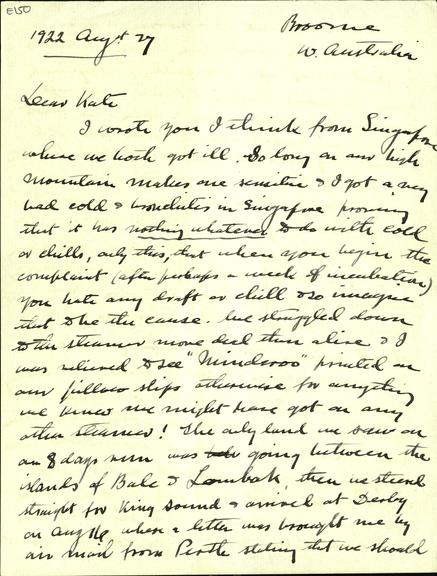 E150
Broome
W. Australia
1922 Augst 27
Dear Kate
I wrote you I think from Singapore
where we both got ill. So long on our high
mountain makes one sensitive & I got a very
bad cold & bronchitis in Singapore proving
that it has nothing whatever to do with cold
or chills, only this, that when you begin the
complaint (after perhaps a week of incubation)
you hate any draft or chill & so imagine
that to be the cause. We struggled down
to the steamer more dead than alive & I
was relieved to see "Minderoo" printed on
our pillow slips otherwise for anything
we knew we might have got on any
other steamer! The only land we saw on
our 8 days run was going between the
islands of Bale & Lombok, then we steered
straight for King Sound & arrived at Derby
on Aug 14 where a letter was brought me by
air mail from Perth stating that we should